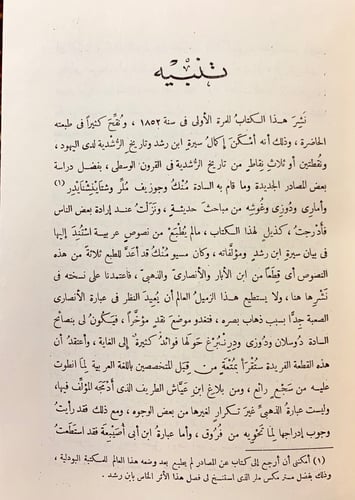 تنبيه
نُشِرَ هذا الكتاب للمرة الأولى فى سنة ١٨٥٢ ، ونُقِّحَ كثيراً فى طبعته
الحاضرة ، وذلك أنه أمكن إكمالُ سيرةِ ابن رشد وتاريخِ الرُّشدية لدى اليهود ،
ونقطتين أو ثلاثِ نِقاطٍ من تاريخ الرُّشدية فى القرون الوسطى ، بفضل دراسة
بعض المصادر الجديدة وما قام به السادة مُنْك وجوزيف مُلَّر وشتاينشنايدر (١)
وأمارى ودُوزِى وغُوشِه من مباحثَ حديثةٍ ، ونزَلْتُ عند إرادة بعض الناس
فأدرجتُ ، كذيلٍ لهذا الكتاب ، مالم يُطْبَعْ من نصوصٍ عربيةٍ اسْتُنِدَ إليها
فى بيان سيرةِ ابن رشد ومؤلَّفاته ، وكان مسيو مُنْك قد أعدَّ للطبع ثلاثةً من هذه
النصوص أى قِطَعاً من ابن الأبار والأنصارىِّ والذهبىِّ ، فاعتمدنا على نسخته فى
نَشْرِها هنا ، ولا يستطيع هذا الزميلُ العالم أن يُعِيدَ النظر فى عبارة الأنصارى
الصعبة جِدًّا بسبب ذهاب بصره ، فغدو موضعَ نقدٍ مؤخَّراً ، فيكونُ لى بنصائح
السادة دُوسلان ودُوزى ودِرنْبُرغ حَوْلَها فوائدُ كثيرةٌ إلى الغاية ، وأعتقد أن
هذه القطعة الفريدة ستُقْرأ بمُتْعةٍ من قِبَل المتخصصين باللغة العربية لِمَا انطوت
عليه من سَجْعٍ رائع ، ومن بلاغ ابن عَيَّاش الطريف الذى أدْمَجَه المؤلِّف فيها ،
وليست عبارةُ الذهبىِّ غيرَ تكرارٍ لغيرها من بعض الوجوه ، ومع ذلك فقد رأيتُ
وجوب إدراجها لِمَا تَحْتَوِيه من فُرُوق ، وأما عبارةُ ابن أبى أُصَيْبِعة فقد استطعتُ
(١) أمكننى أن أرجع إلى كتاب عن المصادر لم يطبع بعد وضعه هذا العالم للمكتبة البودلية ،
وذلك بفضل مستر مكس ملر الذى استنسخ لى فصل هذا الأثر الخاص بابن رشد .